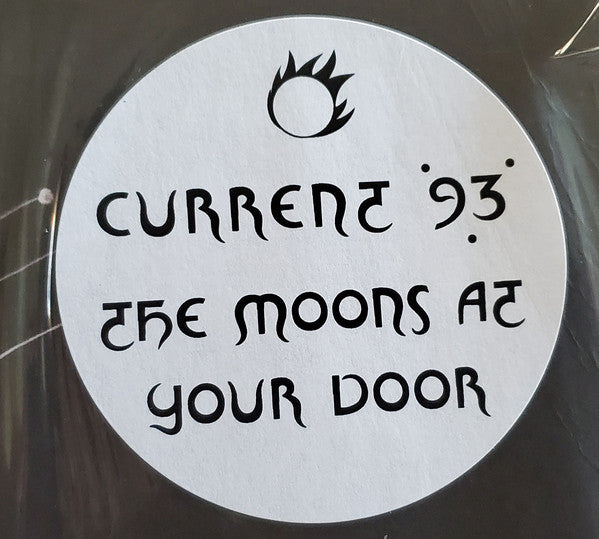 CURRENT 93
THE MOONS AT
YOUR DOOR